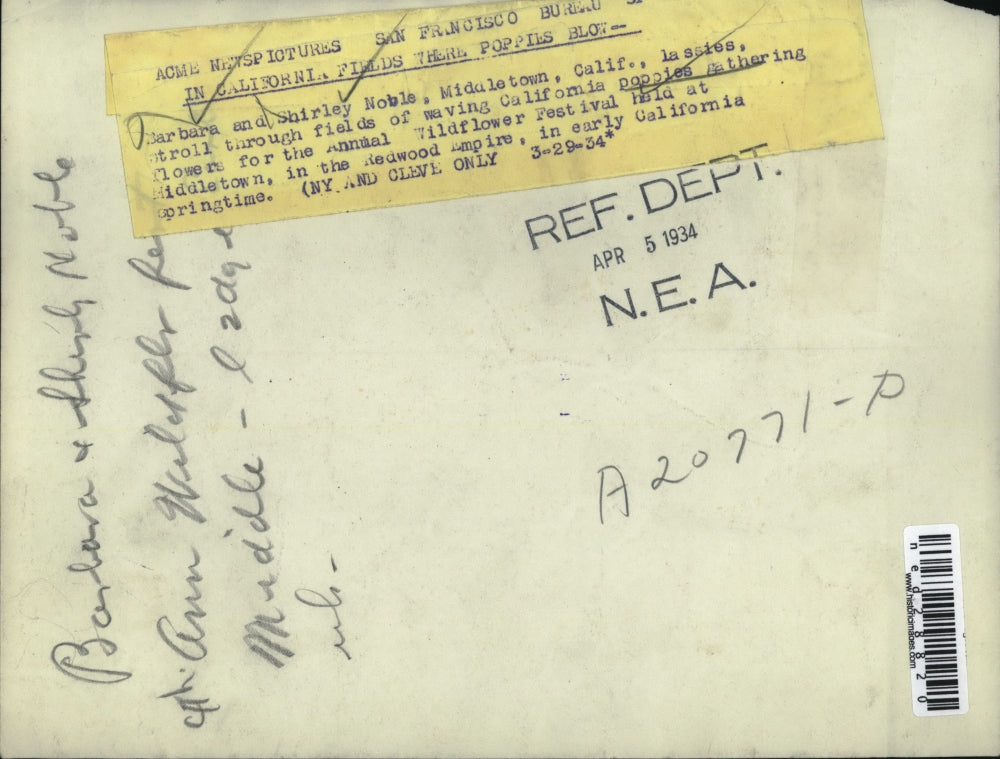 ACME NEWSPICTURES SAN FRANCISCO BUREAU SF
IN CALIFORNIA FIELDS WHERE POPPIES BLOW--
Barbara and Shirley Noble, Middletown, Calif., lassies,
stroll through fields of waving California poppies gathering
flowers for the Annual Wildflower Festival held at
Middletown, in the Redwood Empire, in early California
springtime. (NY AND CLEVE ONLY 3-29-34*
REF. DEPT.
APR 5 1934
N.E.A.
Barbara & Shirly Noble
Ann
Middle -
A20771-P
ned28820
www.historicimages.com